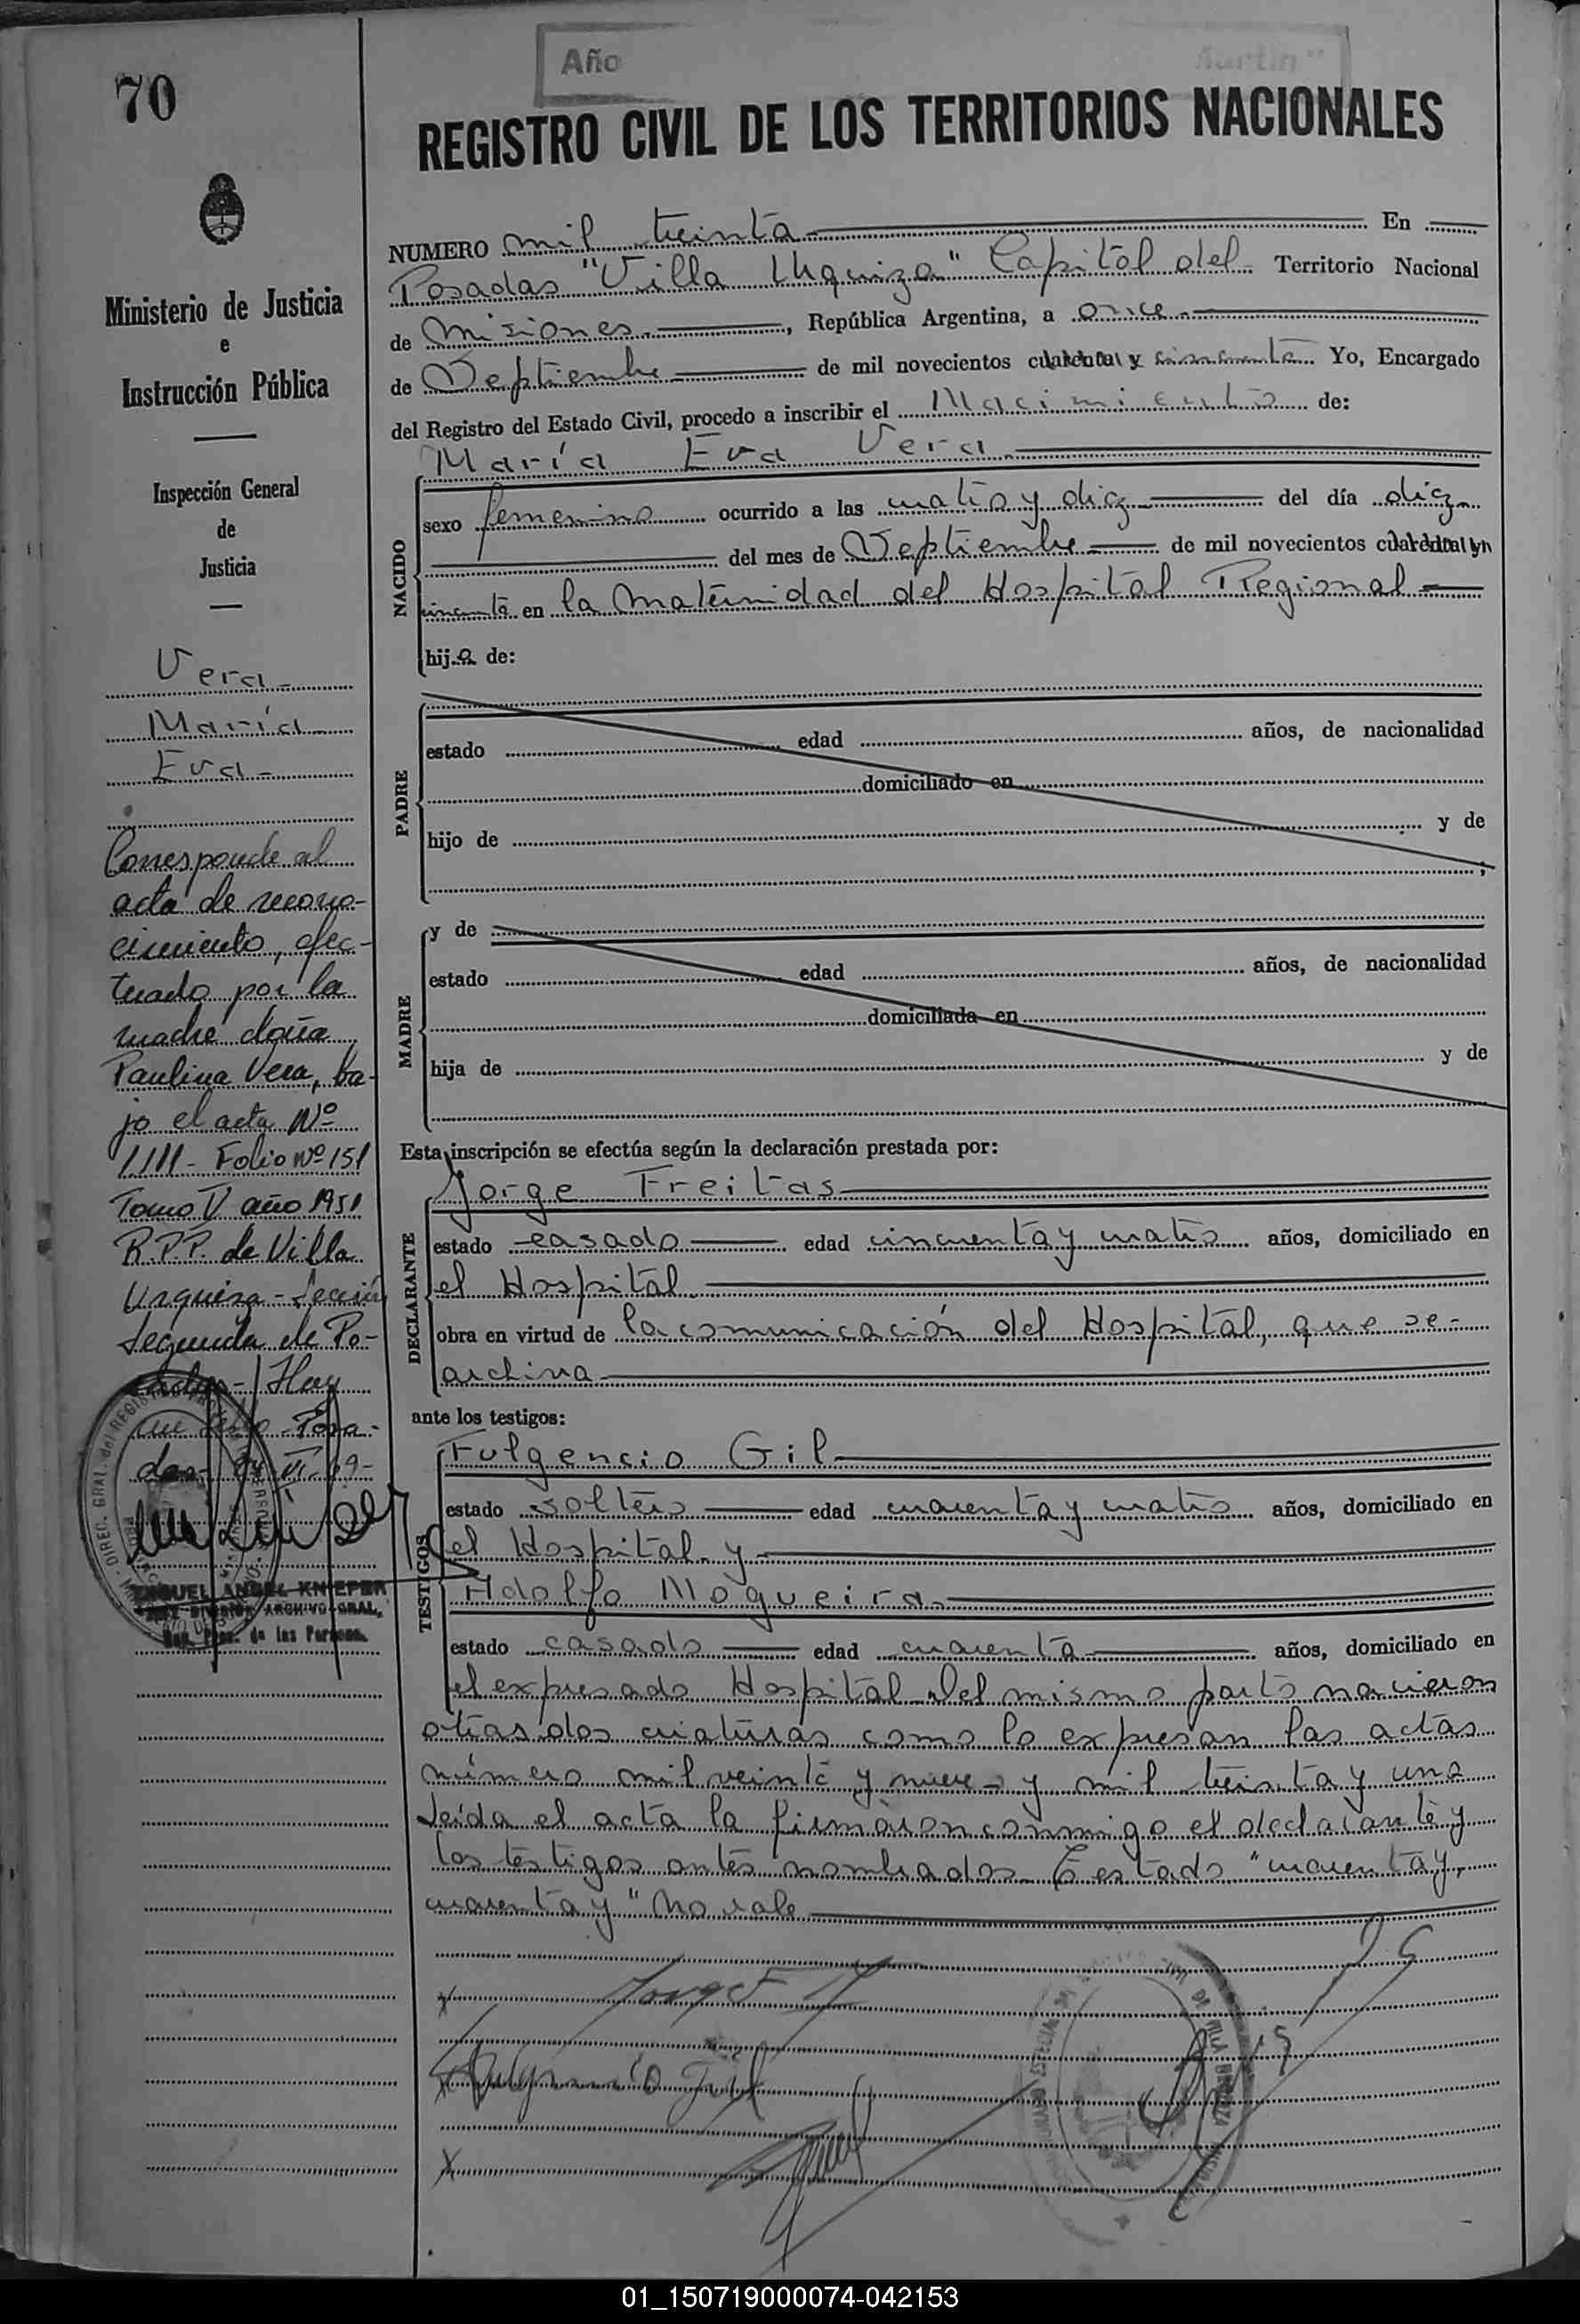 Año
Martin"
70
REGISTRO CIVIL DE LOS TERRITORIOS NACIONALES
Ministerio de Justicia
e
Instrucción Pública
Inspección General
de
Justicia
Vera
María
Eva
Corresponde al
acta de recono-
cimiento, efec-
tuado por la
madre doña
Paulina Vera, ba-
jo el acta Nº
1111 - Folio Nº 151
Tomo V año 1951
R.P.P. de Villa
Urquiza - Sección
Segunda de Po-
sadas - Hay
un sello - Posa-
das -
MIGUEL ANGEL KNIEFER
ARCHIVO GRAL.
de las Personas
NUMERO mil treinta En
Posadas "Villa Urquiza" Capital del Territorio Nacional
de Misiones, República Argentina, a once
de Septiembre de mil novecientos cuarenta y cincuenta Yo, Encargado
del Registro del Estado Civil, procedo a inscribir el Nacimiento de:
María Eva Vera
NACIDO
sexo femenino ocurrido a las cuatro y diez del día diez
del mes de Septiembre de mil novecientos cuarenta y
cincuenta en la Maternidad del Hospital Regional
hija de:
PADRE
estado edad años, de nacionalidad
domiciliado en
hijo de y de
;
MADRE
y de
estado edad años, de nacionalidad
domiciliada en
hija de y de
Esta inscripción se efectúa según la declaración prestada por:
DECLARANTE
Jorge Freitas
estado casado edad cincuenta y cuatro años, domiciliado en
el Hospital.
obra en virtud de la comunicación del Hospital, que se
archiva
ante los testigos:
TESTIGOS
Fulgencio Gil
estado soltero edad cuarenta y cuatro años, domiciliado en
el Hospital y
Adolfo Nogueira
estado casado edad cuarenta años, domiciliado en
el expresado Hospital Del mismo parto nacieron
otras dos criaturas como lo expresan las actas
número mil veinte y nueve y mil treinta y uno
Leída el acta la firmaron conmigo el declarante y
los testigos antes nombrados Testado "cuarenta y,
cuarenta y" No vale
Jorge F
Fulgencio Gil
01_150719000074-042153